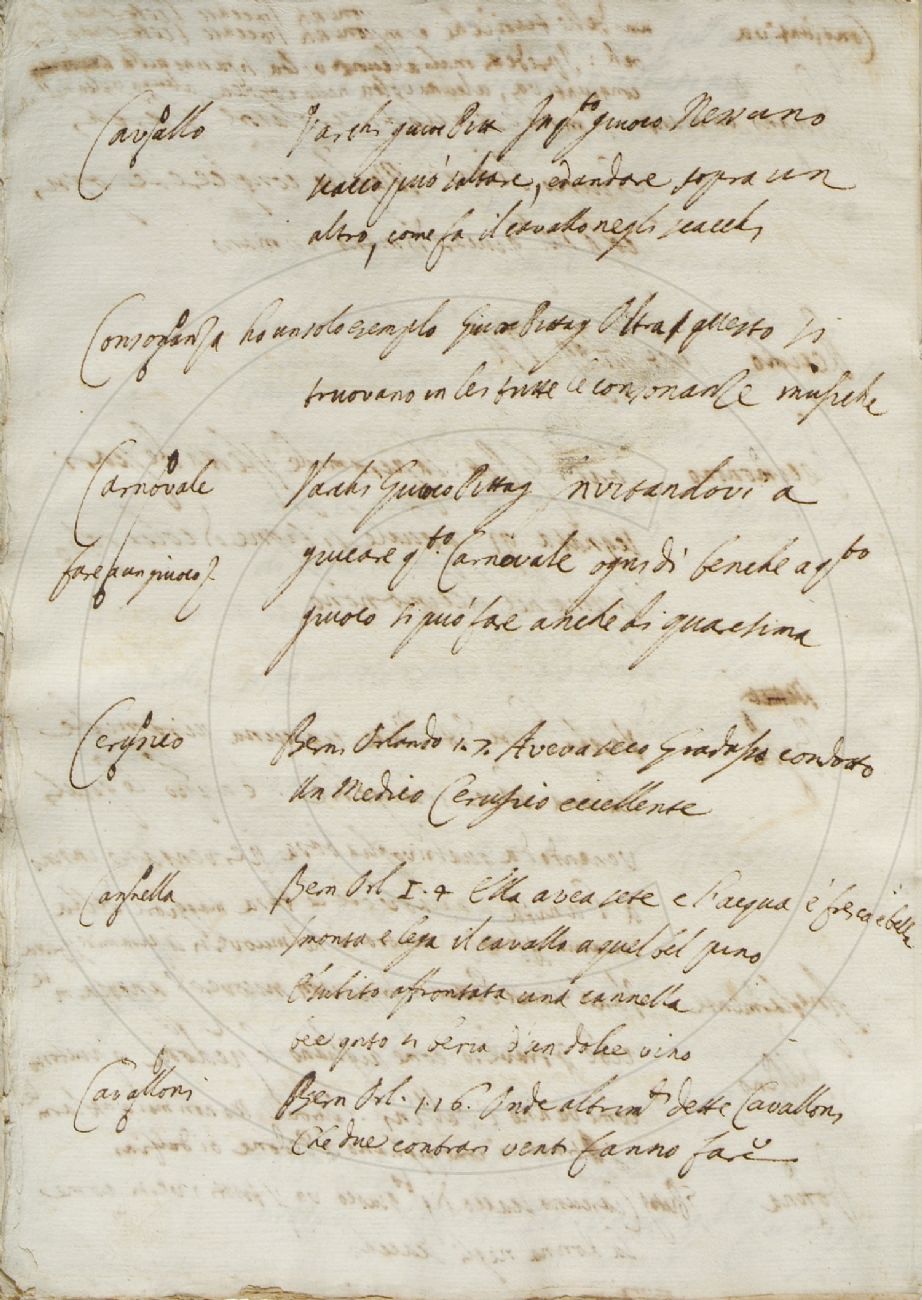 Cavallo Varchi giuoc Pitt In q.sto giuoco Nessuno
scacco può saltare, ed andare sopra un
altro, come fa il cavallo negli scacchi
Consonanza ho un solo esemplo Giuoc Pittag Oltra questo si
truovano in lei tutte le consonanze musiche
Carnovale Varchi Giuoco Pittag Invitandovi a
giucare q.sto Carnovale ogni dì benche a q.sto
fare a un giuoco
giuoco si può fare anche di quaresima
Cerusico Bern Orlando 1.7. Aveva seco Gradasso condotto
Un Medico Cerusico eccellente
Cannella Bern Orl 1.4 Ella avea sete e l'acqua è fresca è bella
smonta e lega il cavallo a quel bel pino
E subito affrontata una cannella
bee q.sto si beria d'un dolce vino
Cavalloni Bern Orl. 1.16. Onde altrim.ti dette Cavalloni
Che due contrari venti fanno fare